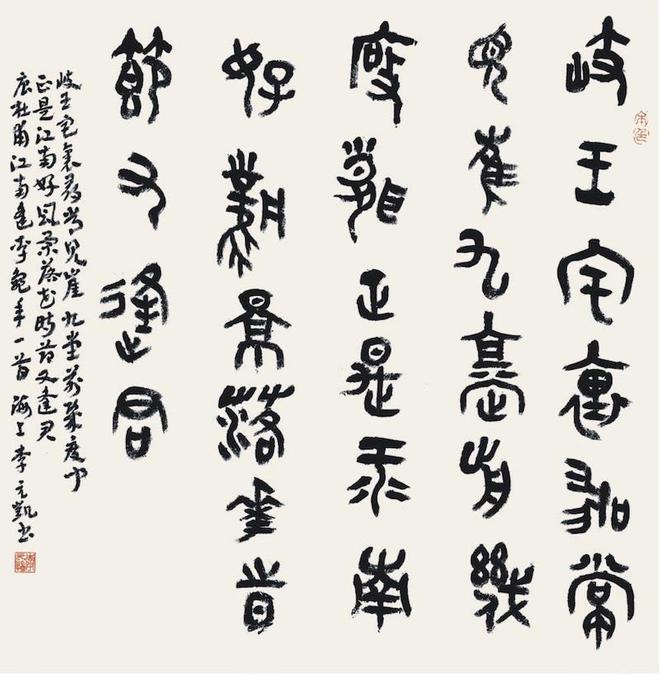 岐王宅裏尋常
見崔九堂前幾
度聞正是江南
好風景落花時
節又逢君
岐王宅裏尋常見崔九堂前幾度聞
正是江南好風景落花時節又逢君
唐杜甫江南逢李龜年一首 海上李元凱書